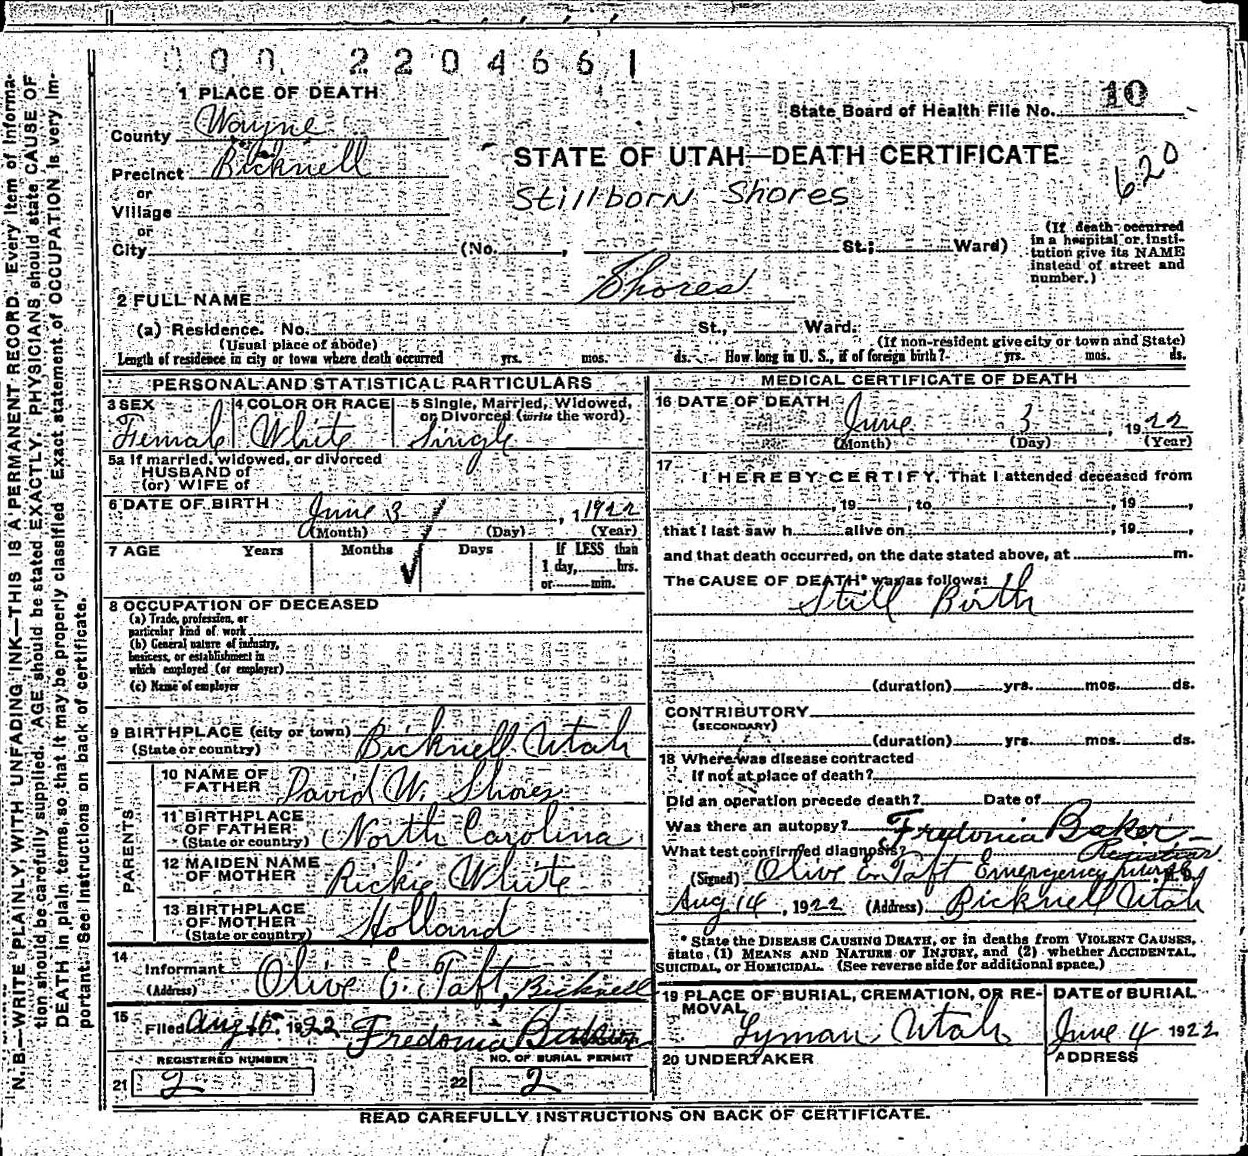 000 2204661
1 PLACE OF DEATH
State Board of Health File No. 10
County Wayne
Precinct Bicknell
STATE OF UTAH—DEATH CERTIFICATE
620
or
Village
Stillborn Shores
or
City (No. , St.; Ward)
(If death occurred in a hospital or institution give its NAME instead of street and number.)
2 FULL NAME Shores
(a) Residence. No. St., Ward.
(Usual place of abode) (If non-resident give city or town and State)
Length of residence in city or town where death occurred yrs. mos. ds. How long in U. S., if of foreign birth? yrs. mos. ds.
PERSONAL AND STATISTICAL PARTICULARS
3 SEX 4 COLOR OR RACE 5 Single, Married, Widowed, or Divorced (write the word)
Female White Single
5a If married, widowed, or divorced
HUSBAND of
(or) WIFE of
6 DATE OF BIRTH June 3, 1 1922
(Month) (Day) (Year)
7 AGE Years Months Days If LESS than
1 day, hrs.
or min.
8 OCCUPATION OF DECEASED
(a) Trade, profession, or
particular kind of work
(b) General nature of industry,
business, or establishment in
which employed (or employer)
(c) Name of employer
9 BIRTHPLACE (city or town) Bicknell Utah
(State or country)
PARENTS
10 NAME OF FATHER David W. Shores
11 BIRTHPLACE OF FATHER North Carolina
(State or country)
12 MAIDEN NAME OF MOTHER Rickie White
13 BIRTHPLACE OF MOTHER Holland
(State or country)
14
Informant Olive E. Taft, Bicknell
(Address)
15
Filed Aug 16, 1922 Fredonia Baker
REGISTERED NUMBER NO. OF BURIAL PERMIT
21 2 22 2
MEDICAL CERTIFICATE OF DEATH
16 DATE OF DEATH June 3, 1922
(Month) (Day) (Year)
17
I HEREBY CERTIFY, That I attended deceased from
, 19 , to , 19 ,
that I last saw h alive on , 19 ,
and that death occurred, on the date stated above, at m.
The CAUSE OF DEATH* was as follows:
Still Birth
(duration) yrs. mos. ds.
CONTRIBUTORY
(SECONDARY)
(duration) yrs. mos. ds.
18 Where was disease contracted
If not at place of death?
Did an operation precede death? Date of
Was there an autopsy? Fredonia Baker
What test confirmed diagnosis? Registrar
(Signed) Olive E. Taft Emergency
Aug 14, 1922 (Address) Bicknell Utah
* State the DISEASE CAUSING DEATH, or in deaths from VIOLENT CAUSES,
state (1) MEANS AND NATURE OF INJURY, and (2) whether ACCIDENTAL,
SUICIDAL, or HOMICIDAL. (See reverse side for additional space.)
19 PLACE OF BURIAL, CREMATION, OR REMOVAL DATE of BURIAL
Lyman Utah June 4 1922
20 UNDERTAKER ADDRESS
READ CAREFULLY INSTRUCTIONS ON BACK OF CERTIFICATE.
N. B.—WRITE PLAINLY, WITH UNFADING INK—THIS IS A PERMANENT RECORD. Every item of informa-
tion should be carefully supplied. AGE should be stated EXACTLY. PHYSICIANS should state CAUSE OF
DEATH in plain terms, so that it may be properly classified. Exact statement of OCCUPATION is very im-
portant. See instructions on back of certificate.